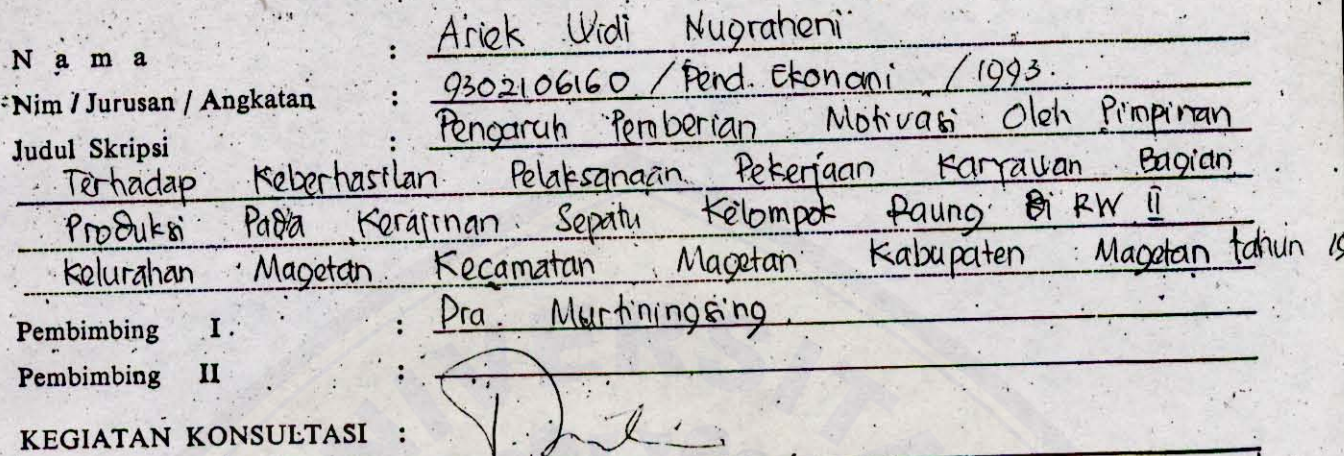 N a m a : Ariek Widi Nugraheni
Nim / Jurusan / Angkatan : 9302106160 / Pend. Ekonomi / 1993.
Judul Skripsi : Pengaruh Pemberian Motivasi Oleh Pimpinan
Terhadap Keberhasilan Pelaksanaan Pekerjaan Karyawan Bagian
Produksi Pada Kerajinan Sepatu Kelompok Raung Di RW II
Kelurahan Magetan Kecamatan Magetan Kabupaten Magetan tahun 19
Pembimbing I. : Dra. Murtiningsing.
Pembimbing II :
KEGIATAN KONSULTASI :